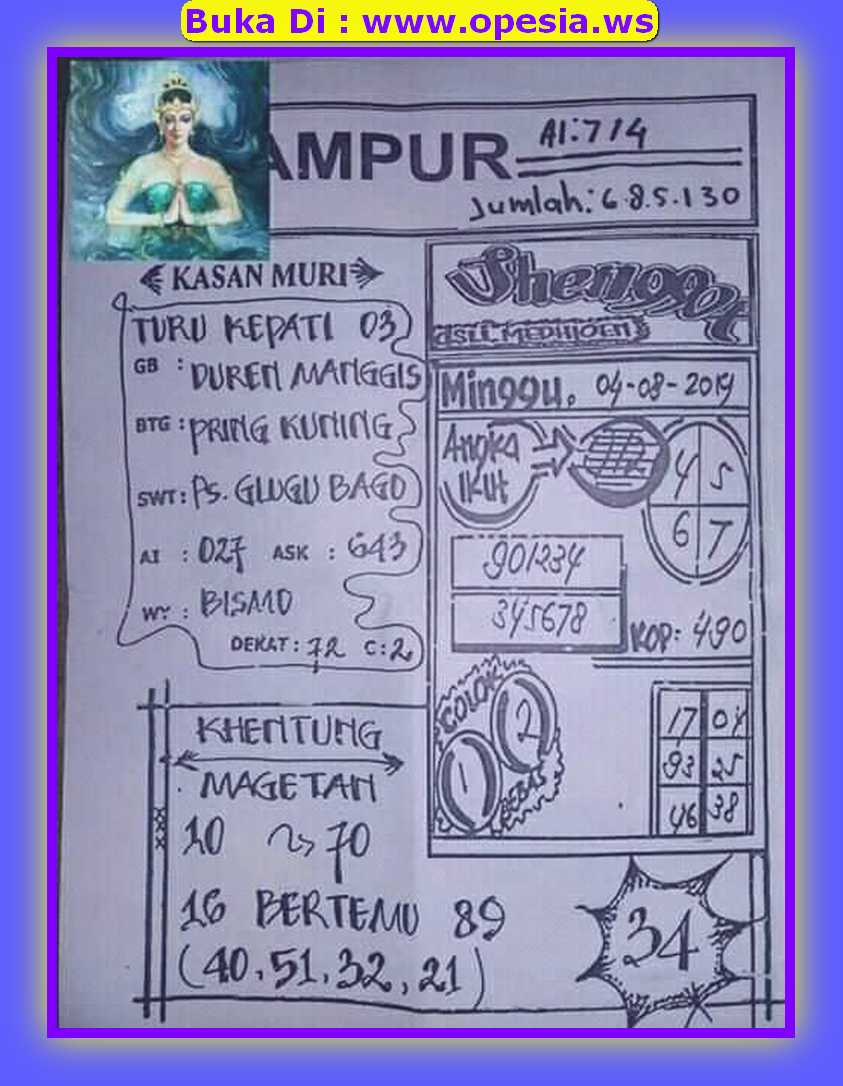 Buka Di : www.opesia.ws
AMPUR
AI:714
Jumlah: 6.8.5.130
KASAN MURI
TURU KEPATI 03
GB : DUREN MANGGIS
BTG : PRING KUNING
SWT : Ps. GLUGU BAGO
AI : 027 ASK : 643
W : BISMO
DEKAT : 72 C : 2
Minggu, 04-08-2019
Angka
IKUt
4 5
6 7
901234
345678
KOP: 490
COLOK
1 2
BEBAS
17 04
93 25
46 38
KHENTUNG
MAGETAN
XXX
10 70
16 BERTEMU 89
(40, 51, 32, 21)
34